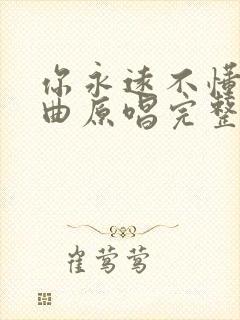 你永远不懂
曲原唱完整
崔莺莺